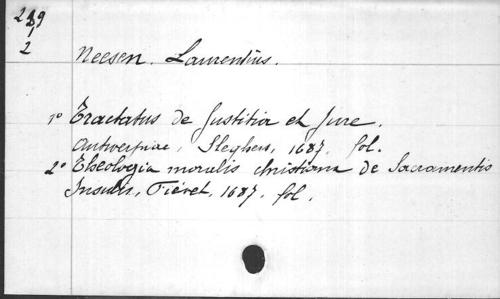 239
1
2
Neesen. Laurentius.
1° Tractatus de Justitia et Jure.
Antwerpiae, Sleghers, 1687. fol.
2° Theologia moralis christiana de Sacramentis
Insulis, Fievet, 1687. fol.